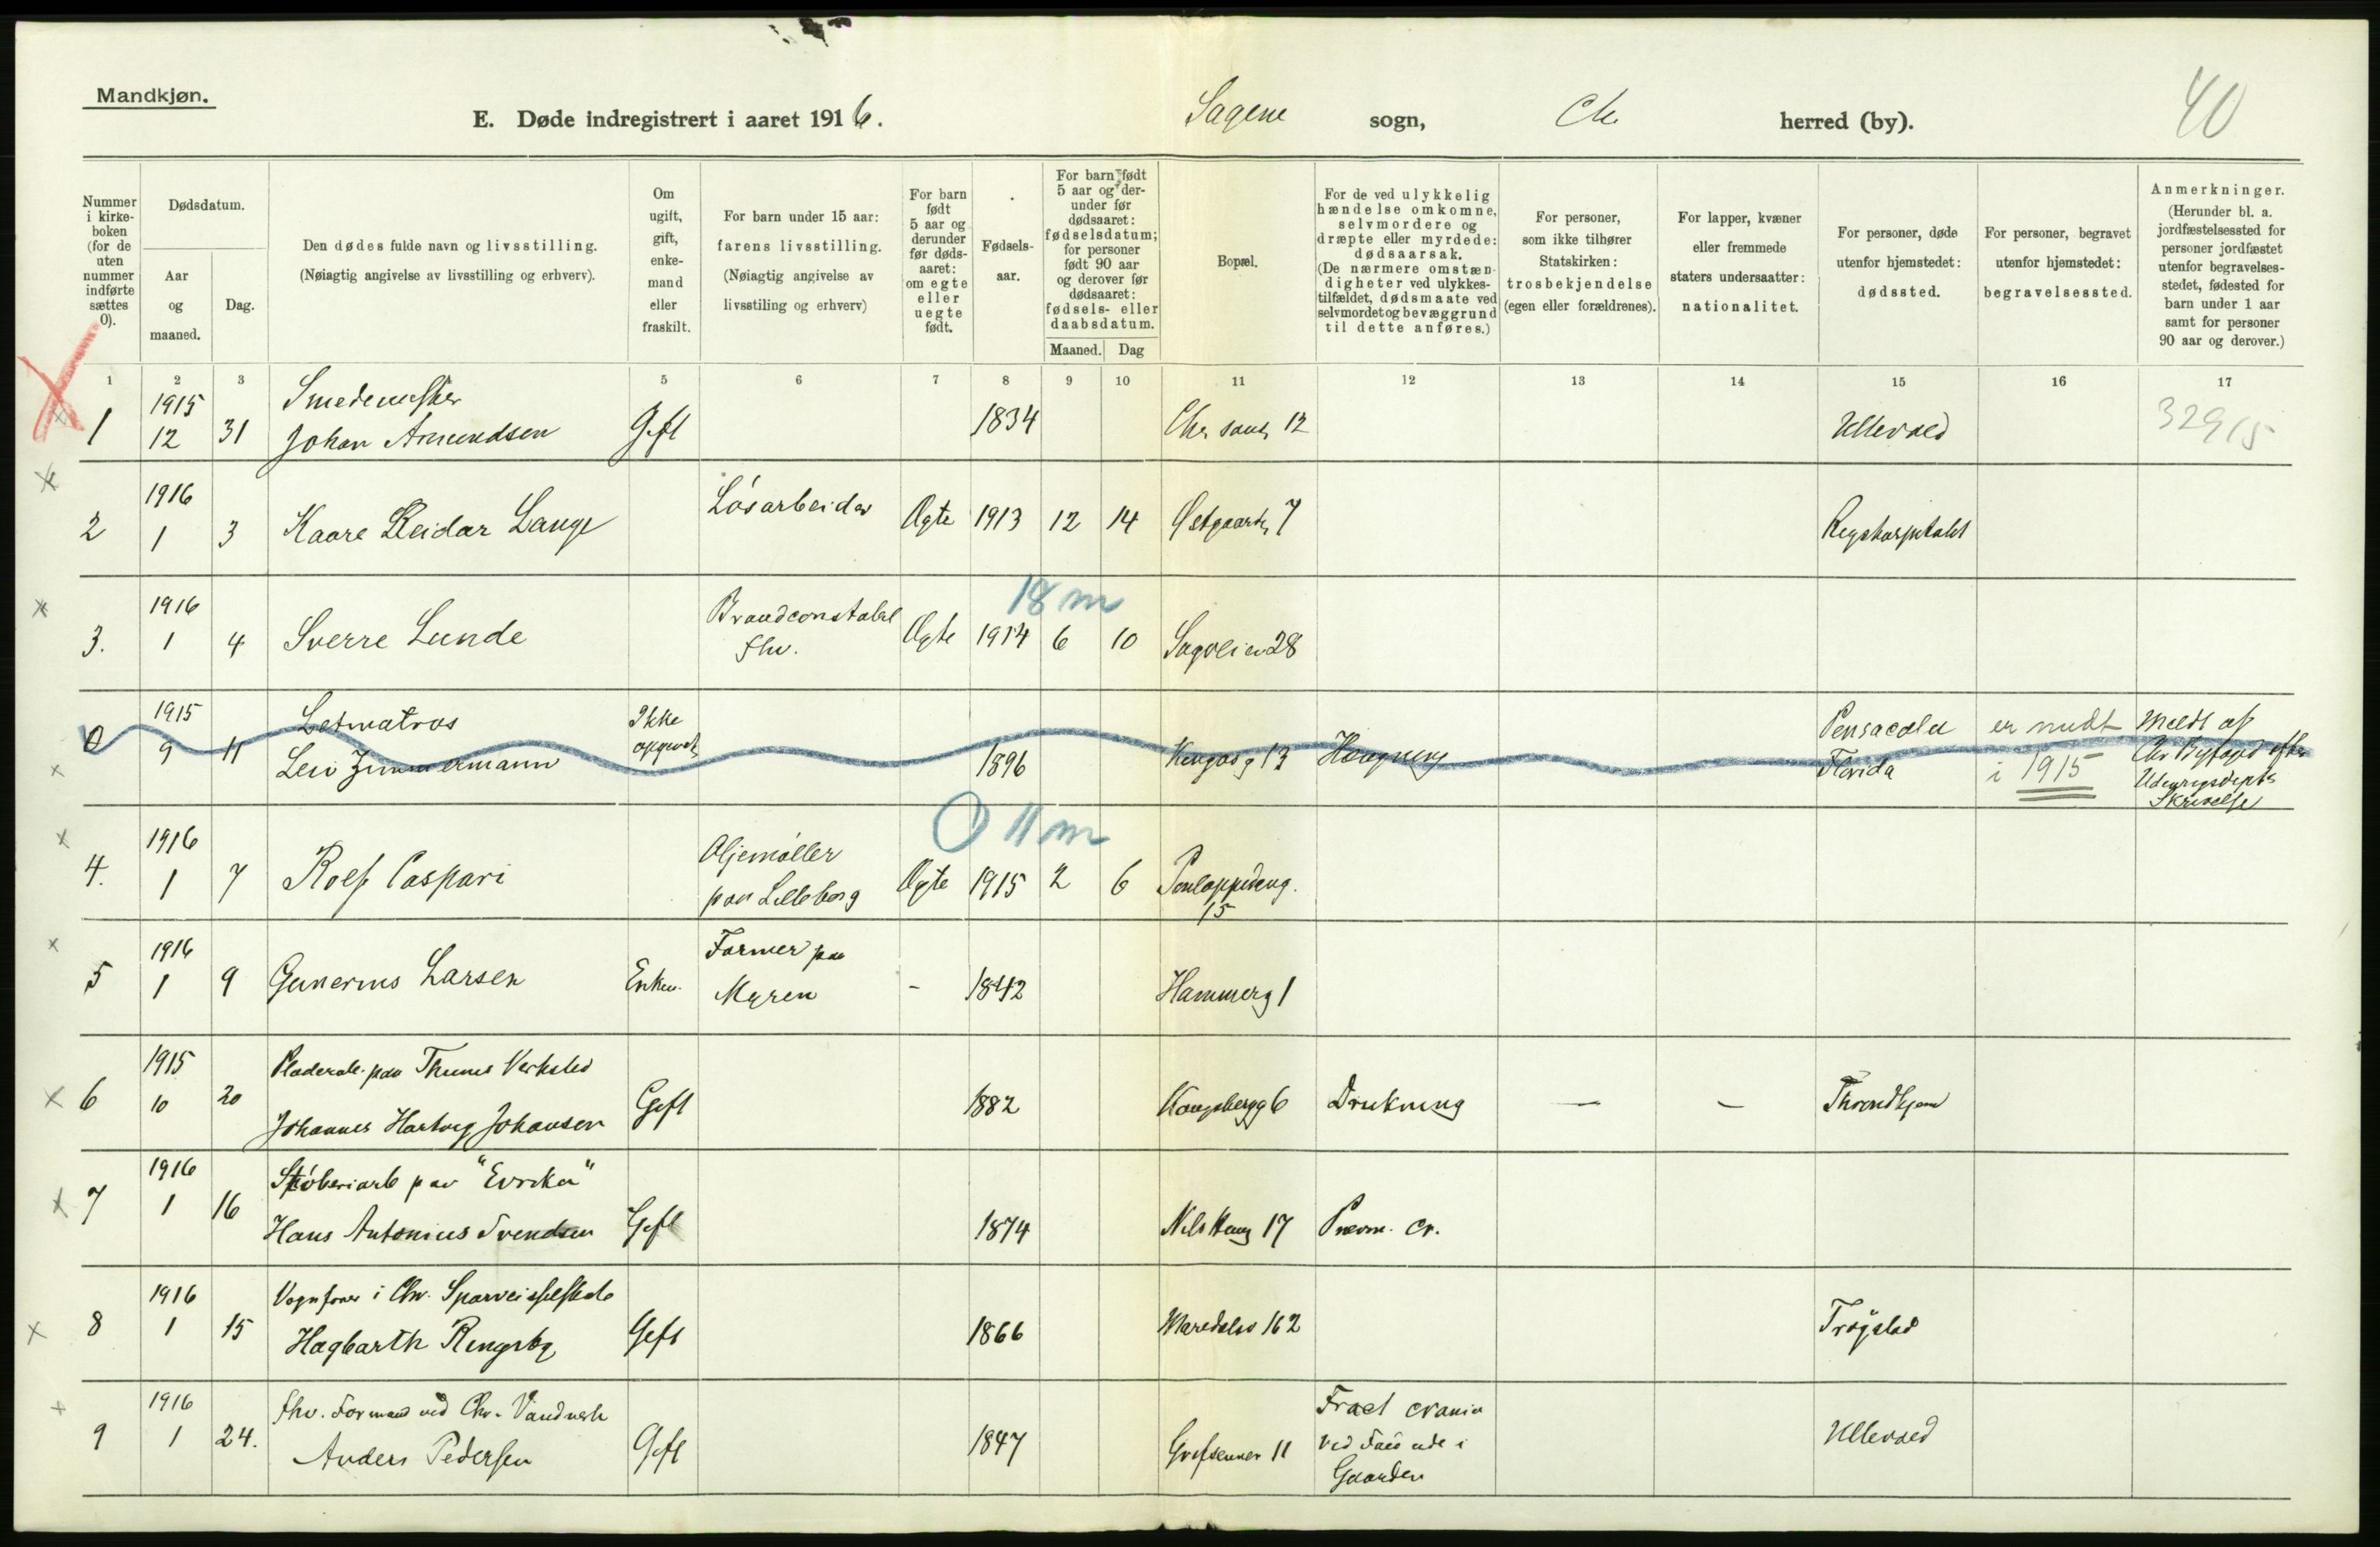 Mandkjøn.
E. Døde indregistrert i aaret 1916.
Sagene sogn,
Ch. herred (by).
40
Nummer
i kirke-
boken
(for de
uten
nummer
indførte
sættes
0).
Dødsdatum.
Aar
og
maaned.
Dag.
Den dødes fulde navn og livsstilling.
(Nøiagtig angivelse av livsstilling og erhverv).
Om
ugift,
gift,
enke-
mand
eller
fraskilt.
For barn under 15 aar:
farens livsstilling.
(Nøiagtig angivelse av
livsstiling og erhverv)
For barn
født
5 aar og
derunder
før døds-
aaret:
om egte
eller
uegte
født.
Fødsels-
aar.
For barn født
5 aar og der-
under før
dødsaaret:
fødselsdatum;
for personer
født 90 aar
og derover før
dødsaaret:
fødsels- eller
daabsdatum.
Maaned. Dag
Bopæl.
For de ved ulykkelig
hændelse omkomne,
selvmordere og
dræpte eller myrdede:
dødsaarsak.
(De nærmere omstæn-
digheter ved ulykkes-
tilfældet, dødsmaate ved
selvmordet og bevæggrund
til dette anføres.)
For personer,
som ikke tilhører
Statskirken:
trosbekjendelse
(egen eller forældrenes).
For lapper, kvæner
eller fremmede
staters undersaatter:
nationalitet.
For personer, døde
utenfor hjemstedet:
dødssted.
For personer, begravet
utenfor hjemstedet:
begravelsessted.
Anmerkninger.
(Herunder bl. a.
jordfæstelsessted for
personer jordfæstet
utenfor begravelses-
stedet, fødested for
barn under 1 aar
samt for personer
90 aar og derover.)
1 2 3 5 6 7 8 9 10 11 12 13 14 15 16 17
1915 Smedemester
1 12 31 Johan Amundsen Gift 1834 12 Ullevaal 329/15
1916 Løsarbeider
2 1 3 Kaare Reidar Lange Ægte 1913 12 14 Østgaardsg 7 Rigshospitalet
18 m
1916 Brandconstabel
3. 1 4 Sverre Lunde fhv. Ægte 1914 6 10 Sagveien 28
1915 Letmatros Ikke Pensacola er meldt Meldt af
0 9 11 Leiv Zimmermann opgivet 1896 13 Hængning Florida i 1915
Skrivelse
0 11 m
1916 Oljemøller
4. 1 7 Rolf Caspari paa Lilleborg Ægte 1915 2 6
15
1916 Former paa
5 1 9 Gunerius Larsen Enkem. Myren - 1842 Hammerg 1
1915 Pladearb. paa Thunes Verksted
6 10 20 Johannes Hartvig Johansen Gift 1882 Kongsbergg 6 Drukning — – Throndhjem
1916 Støberiarb paa "Evrika"
7 1 16 Hans Antonius Svendsen Gift 1874 17 Pneum. cr.
1916 Vognfører i Chr. Sporveisselskab
8 1 15 Hagbarth Ringsby Gift 1866 Maridalsv 162 Trøgstad
1916 fhv. Formand ved Chr. Vandverk Fract cranii
9 1 24. Anders Pedersen Gift 1847 Grefsenveien 11 ved Fald ude i Ullevaal
Gaarden